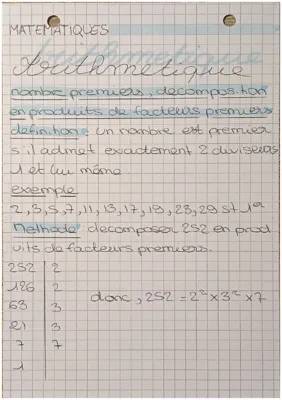 MATEMATIQUES
Arithmetique
nombre premiers, decomposition
en produits de facteurs premiers
definition : un nombre est premier
s'il admet exactement 2 diviseurs
1 et lui même
exemple
2,3,5,7,11,13,17,19,23,29 st 1er
Methode decomposer 252 en prod
uits de facteurs premiers.
252 | 2
126 | 2
63 | 3
21 | 3
7 | 7
1
donc, 252 = 2² x 3² x 7